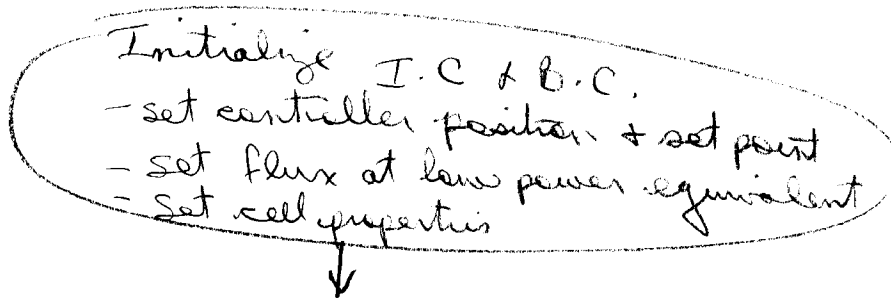 Initialize I.C & B.C.
- set controller position & set point
- set flux at low power equivalent
- set cell properties